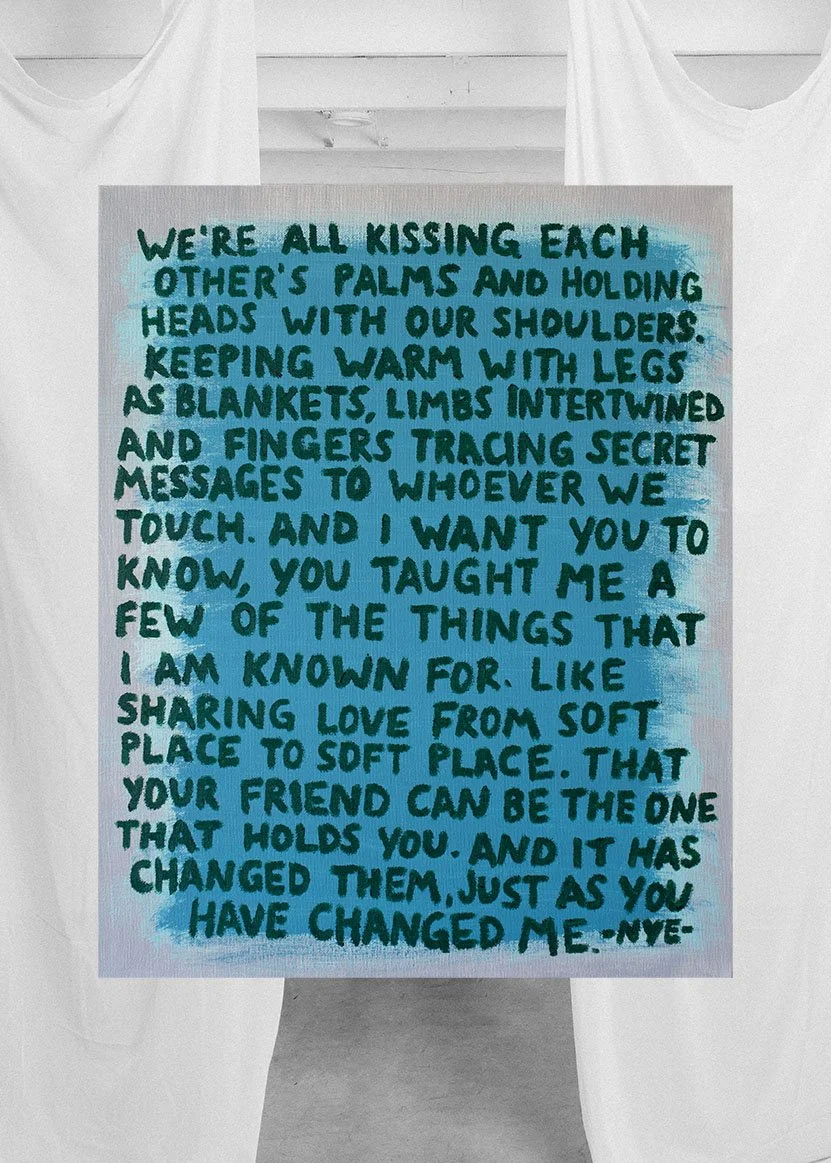 WE'RE ALL KISSING EACH
OTHER'S PALMS AND HOLDING
HEADS WITH OUR SHOULDERS.
KEEPING WARM WITH LEGS
AS BLANKETS, LIMBS INTERTWINED
AND FINGERS TRACING SECRET
MESSAGES TO WHOEVER WE
TOUCH. AND I WANT YOU TO
KNOW, YOU TAUGHT ME A
FEW OF THE THINGS THAT
I AM KNOWN FOR. LIKE
SHARING LOVE FROM SOFT
PLACE TO SOFT PLACE. THAT
YOUR FRIEND CAN BE THE ONE
THAT HOLDS YOU. AND IT HAS
CHANGED THEM, JUST AS YOU
HAVE CHANGED ME. -NYE-